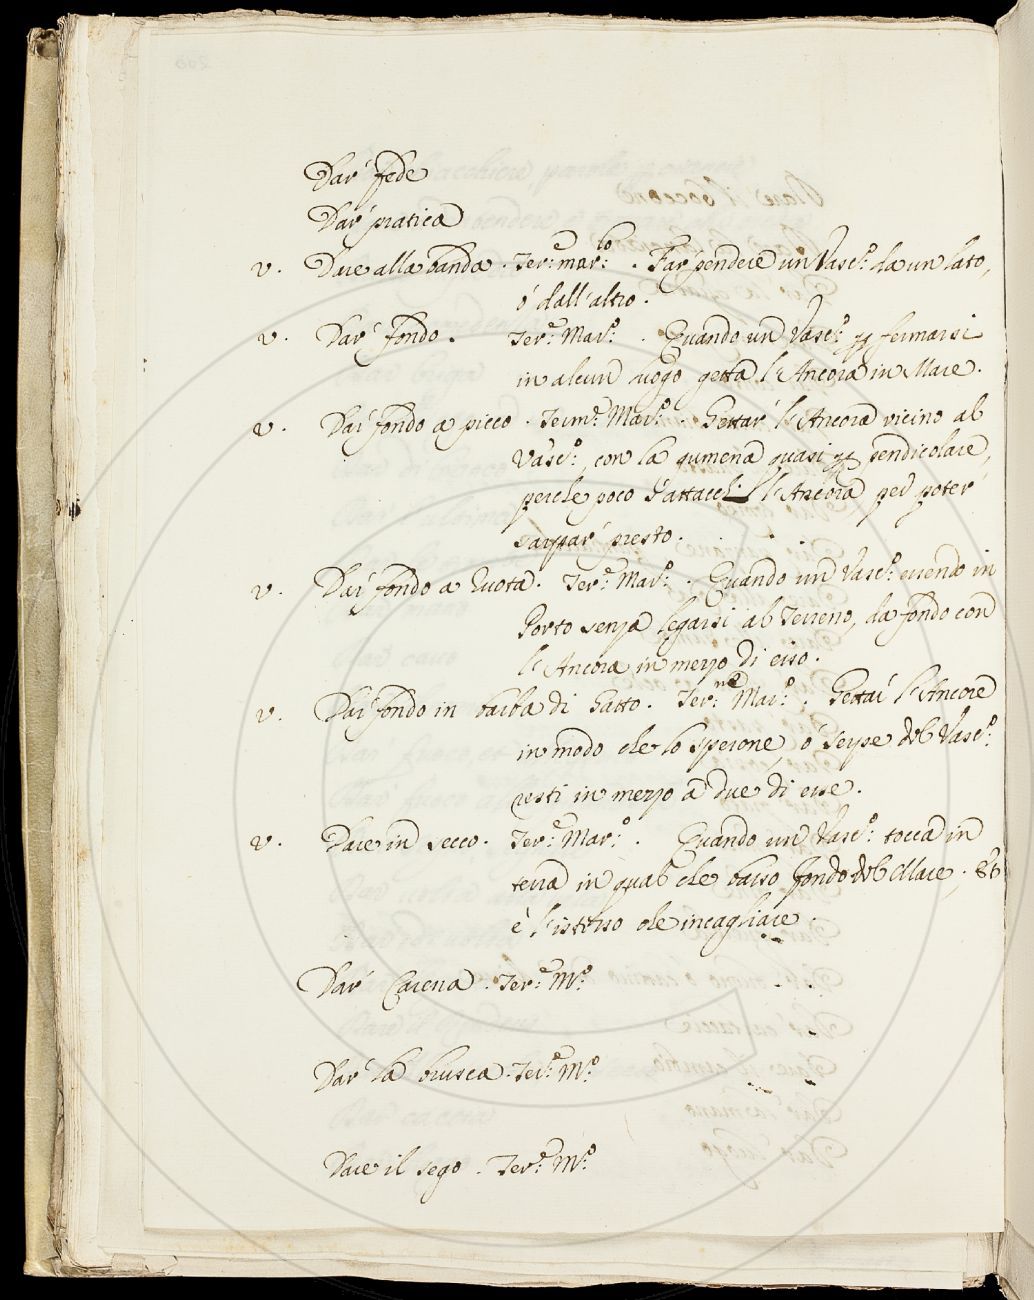 Dar' fede
Dar' pratica
v. Dare alla banda. Ter:e mar:lo. Far pendere un Vasc:o da un lato,
ó dall'altro.
v. Dar' fondo. Ter:e Mar:o. Quando un Vasc:o p fermarsi
in alcun luogo getta l'Ancora in Mare.
v. Dar fondo a picco. Term:e Mar:o. Gettar' l'Ancora vicino al
Vasc:o, con la gumena quasi p pendicolare,
perche poco s'attacchi l'Ancora, per poter'
sarpar' presto.
v. Dar fondo a Ruota. Ter:e Mar:o. Quando un Vasc:o essendo in
Porto senza legarsi al Terreno, da fondo con
l'Ancora in mezzo di esso.
v. Dar fondo in barba di Gatto. Ter:ne Mar:o. Gettar l'Ancore
in modo che lo sperone, ó Serpe del Vasc:o
resti in mezzo a due di esse.
v. Dare in secco. Ter:e Mar:o. Quando un Vasc:o tocca in
terra in qual che basso fondo del Mare. Et
è l'istesso che incagliare.
Dar' Carena. Ter:e M:o
Dar' la brusca. Ter:e M:o
Dare il sego. Ter:e M:o